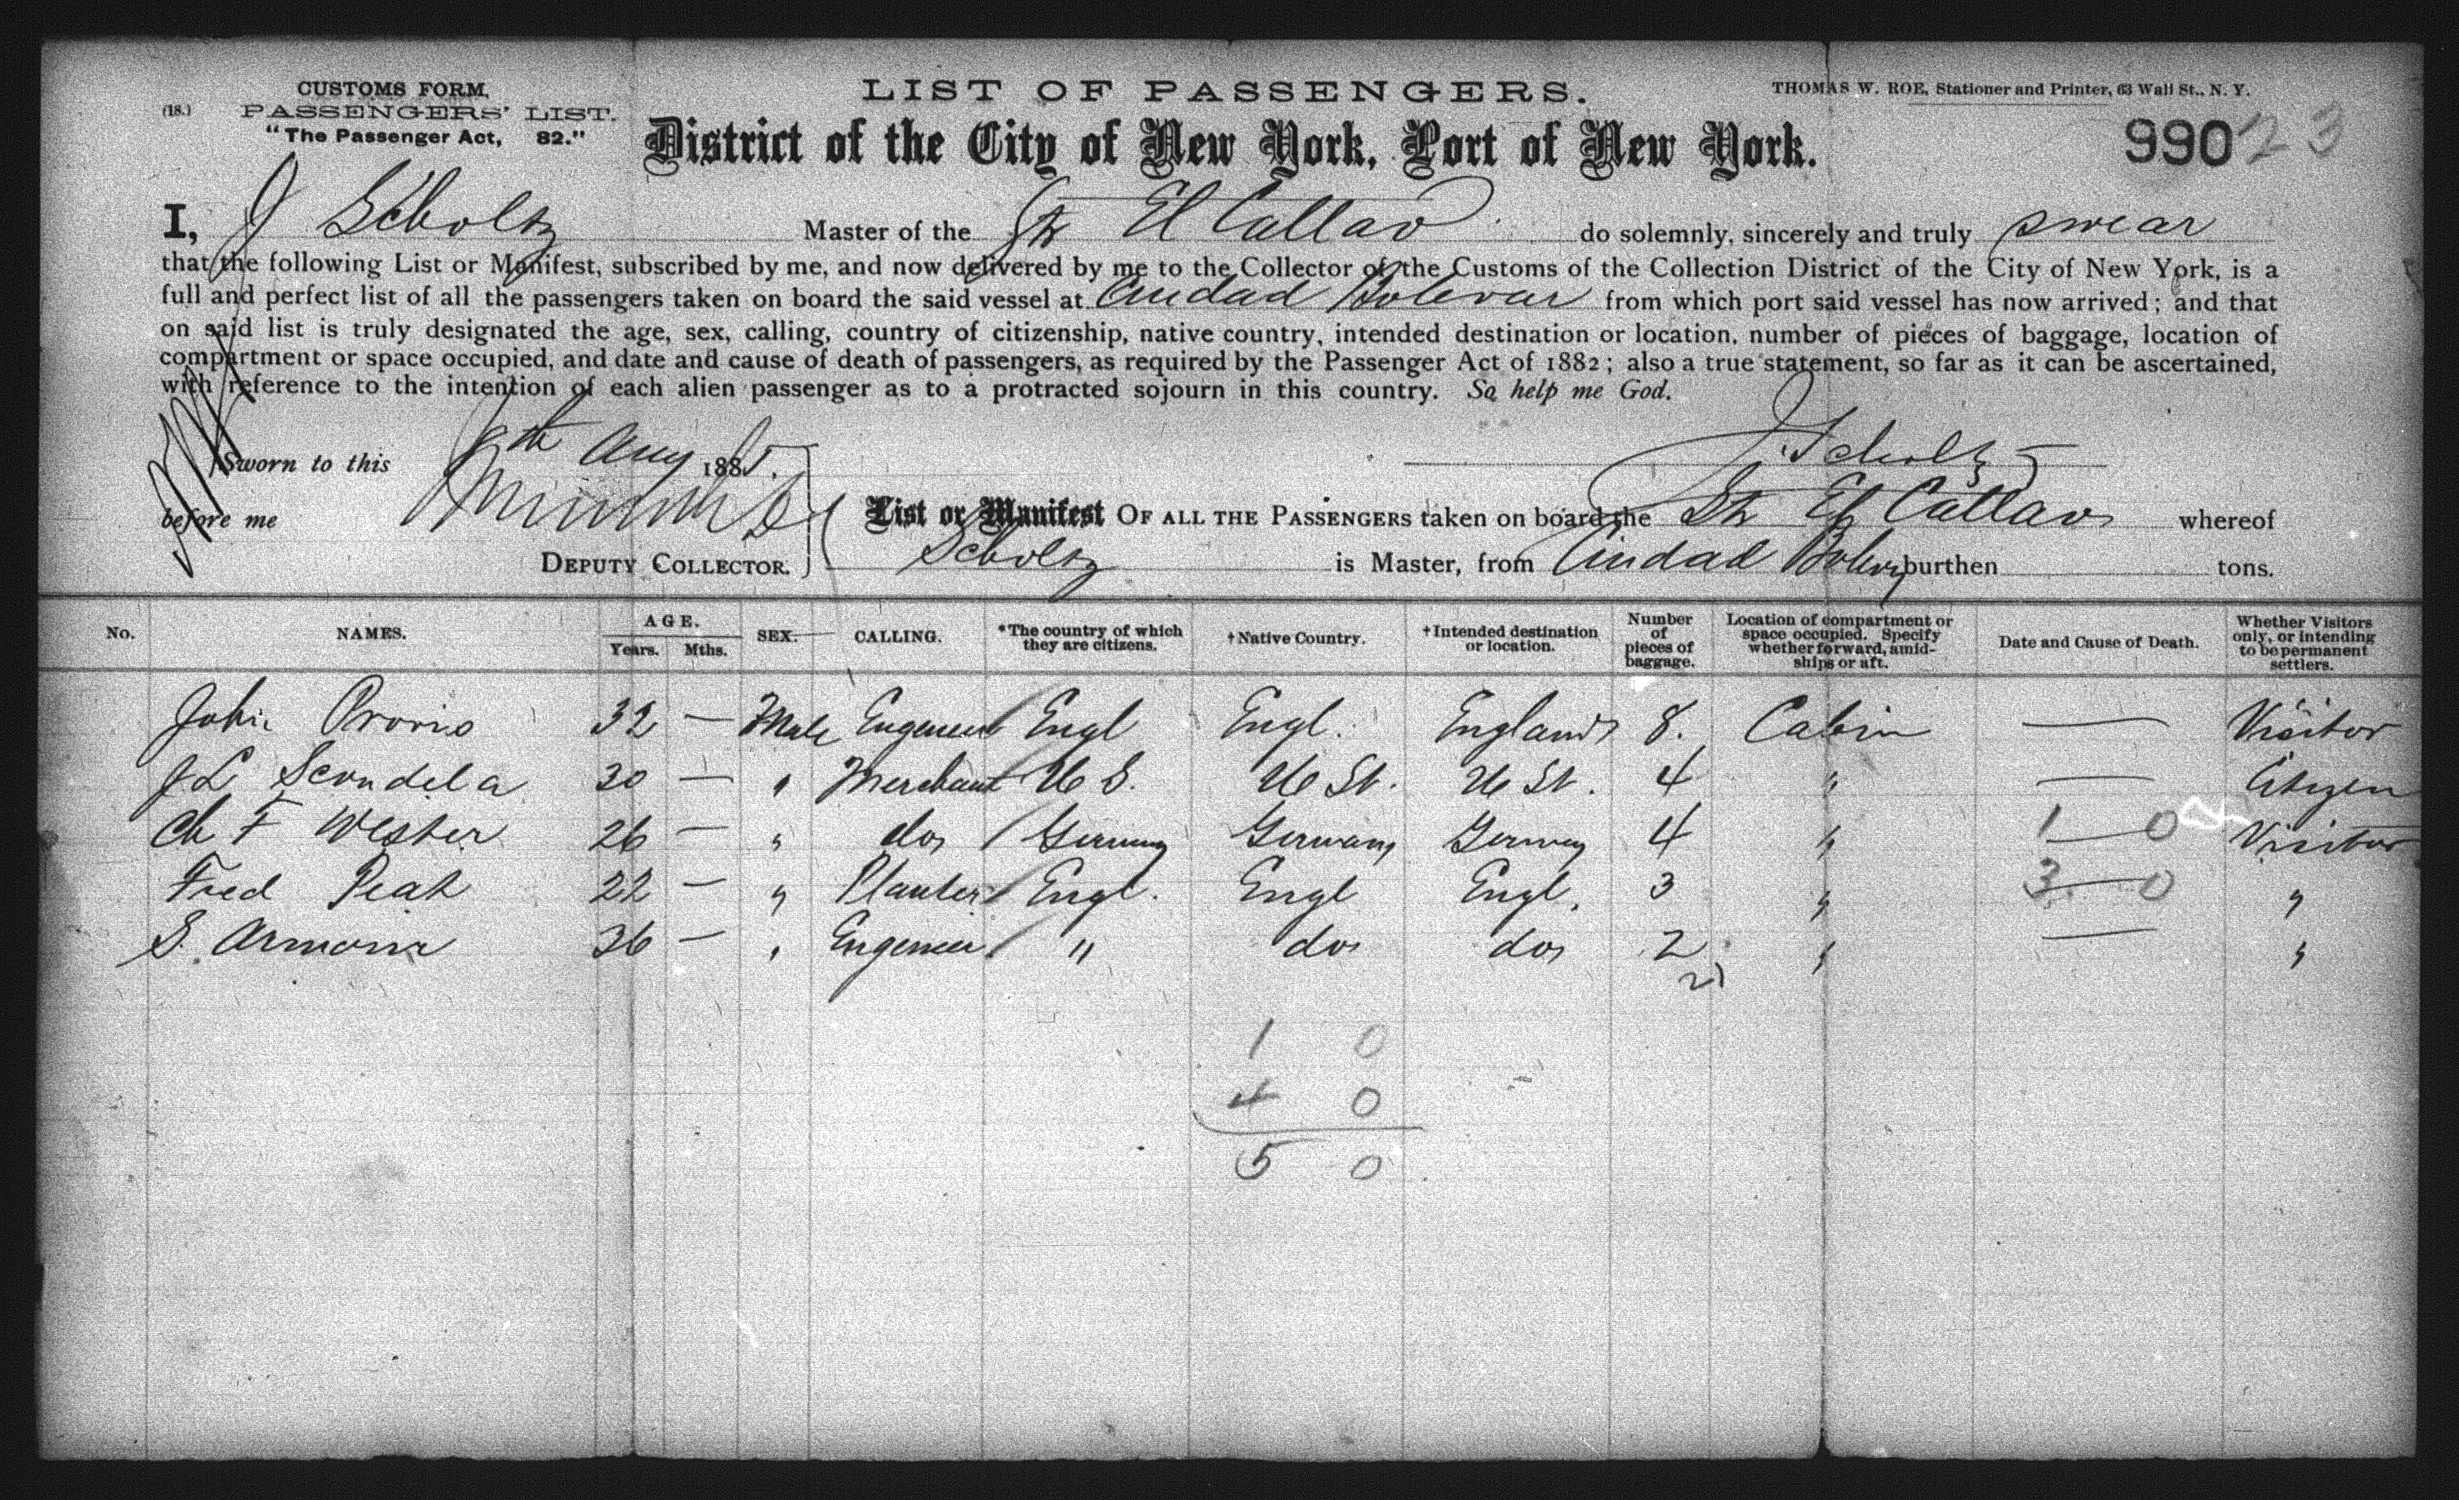 CUSTOMS FORM,
(18.) PASSENGERS' LIST.
"The Passenger Act, 82."
LIST OF PASSENGERS.
THOMAS W. ROE, Stationer and Printer, 63 Wall St., N. Y.
District of the City of New York, Port of New York.
990 23
I, J Scholtz Master of the Str El Callao do solemnly, sincerely and truly swear
that the following List or Manifest, subscribed by me, and now delivered by me to the Collector of the Customs of the Collection District of the City of New York, is a
full and perfect list of all the passengers taken on board the said vessel at Ciudad Bolivar from which port said vessel has now arrived; and that
on said list is truly designated the age, sex, calling, country of citizenship, native country, intended destination or location, number of pieces of baggage, location of
compartment or space occupied, and date and cause of death of passengers, as required by the Passenger Act of 1882; also a true statement, so far as it can be ascertained,
with reference to the intention of each alien passenger as to a protracted sojourn in this country. So help me God.
Sworn to this th Aug 1885.
J. Scholtz
before me
DEPUTY COLLECTOR.
List or Manifest OF ALL THE PASSENGERS taken on board the Str El Callao whereof
Scholtz is Master, from Ciudad Bolivar burthen tons.
No. NAMES. AGE. Years. Mths. SEX. CALLING. *The country of which they are citizens. †Native Country. †Intended destination or location. Number of pieces of baggage. Location of compartment or space occupied. Specify whether forward, amidships or aft. Date and Cause of Death. Whether Visitors only, or intending to be permanent settlers.
John Provis 32 — Male Engeneer Engl Engl. England 8. Cabin — Visitor
J L Scondela 30 — " Merchant U S. U St. U St. 4 " — Citizen
Ch F Wester 26 — " do Germany Germany Germany 4 " 1 — 0 Visitor
Fred Peak 22 — " Planter Engl. Engl Engl. 3 " 3 — 0 "
S. 36 — " Engeneer " do do 2 " — "
21
1 0
4 0
5 0